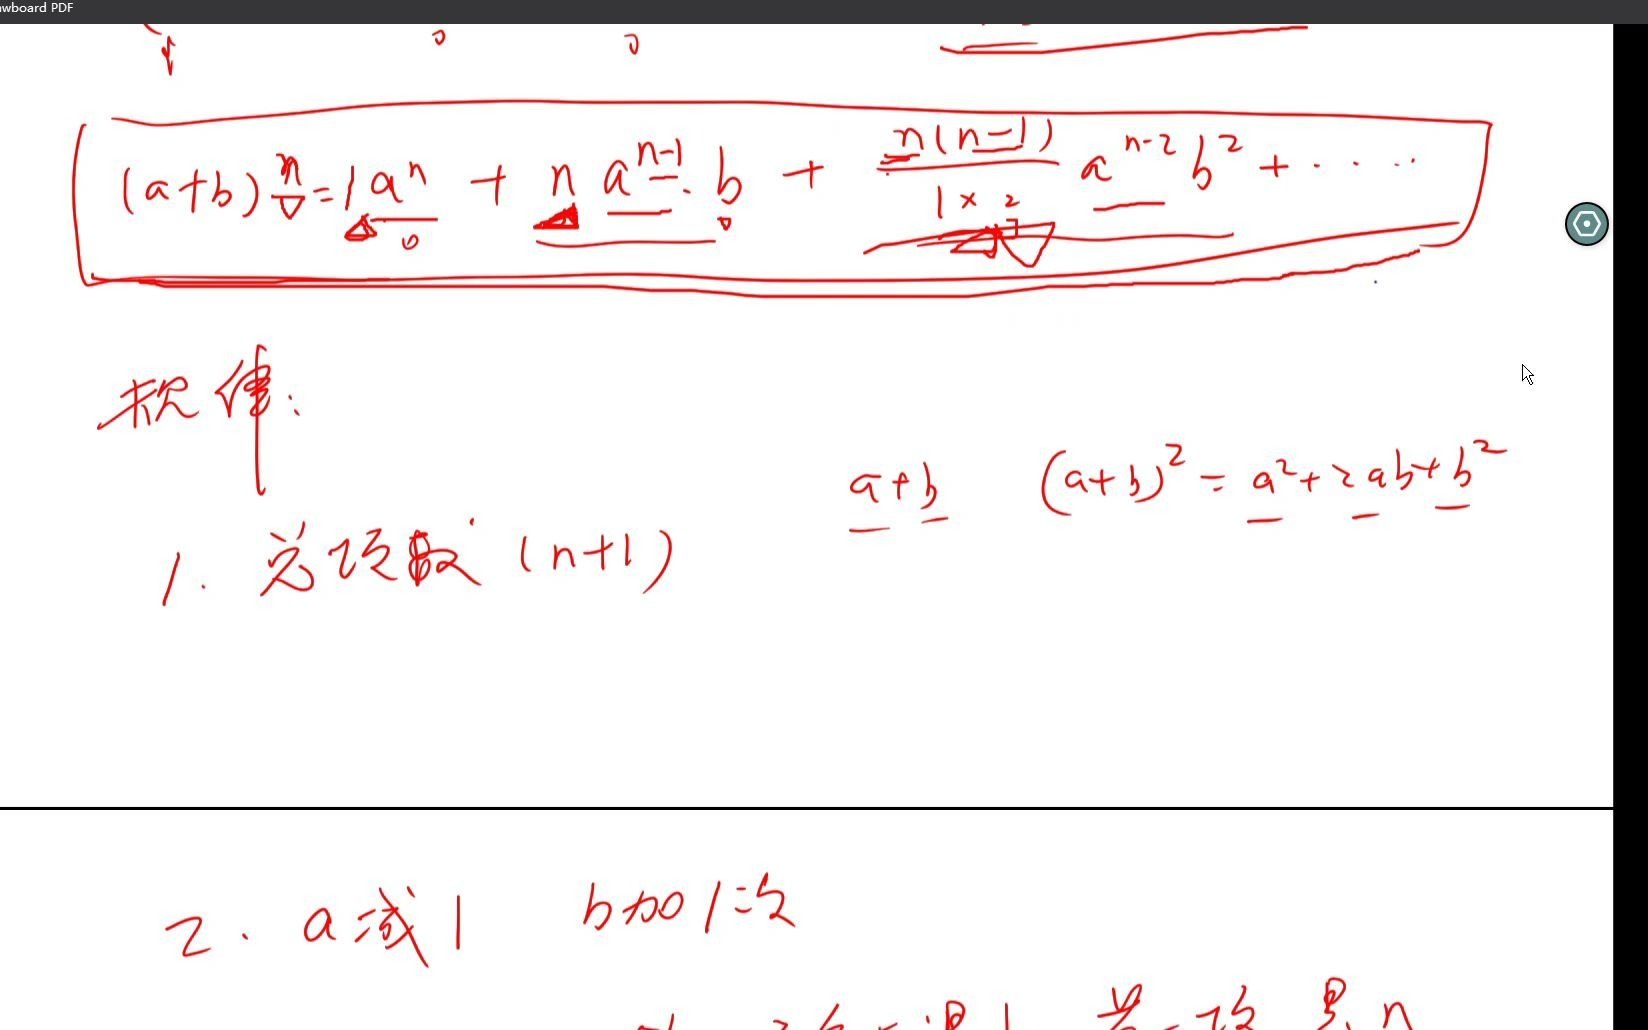 wboard PDF
(a+b)ⁿ = 1aⁿ + n aⁿ⁻¹·b + n(n-1)/1×2 aⁿ⁻²b² + ·····
规律:
a+b (a+b)² = a²+2ab+b²
1. 总项数 (n+1)
2. a减1 b加1次